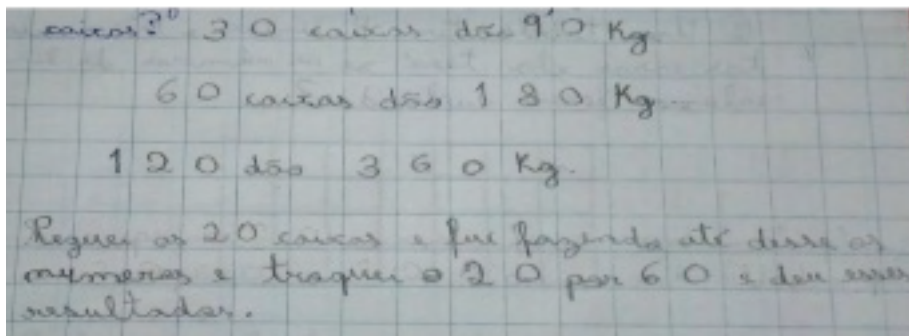 caixas?" 30 caixas dão 90 Kg
60 caixas dão 180 Kg.
120 dão 360 Kg.
Peguei as 20 caixas e fui fazendo até disse os
numeros e traquei o 20 por 60 e deu esses
resultados.